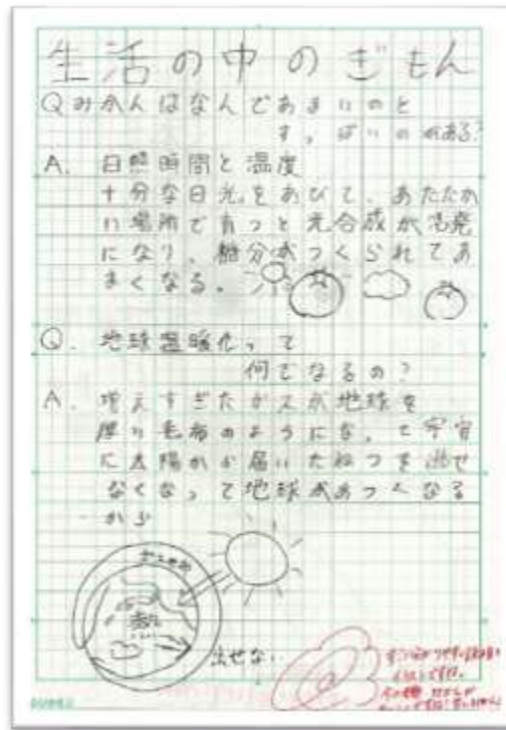 生活の中のぎもん
Qみかんはなんであまいのと
すっぱいのがある?
A. 日照時間と温度
十分な日光をあびて、あたたか
い場所で育つと光合成が活発
になり、糖分がつくられてあ
まくなる。
Q. 地球温暖化って
何でなるの?
A. 増えすぎたガスが地球を
厚い毛布のようになって宇宙
に太陽から届いたねつを逃せ
なくなって地球があつくなる
から
熱
出せない